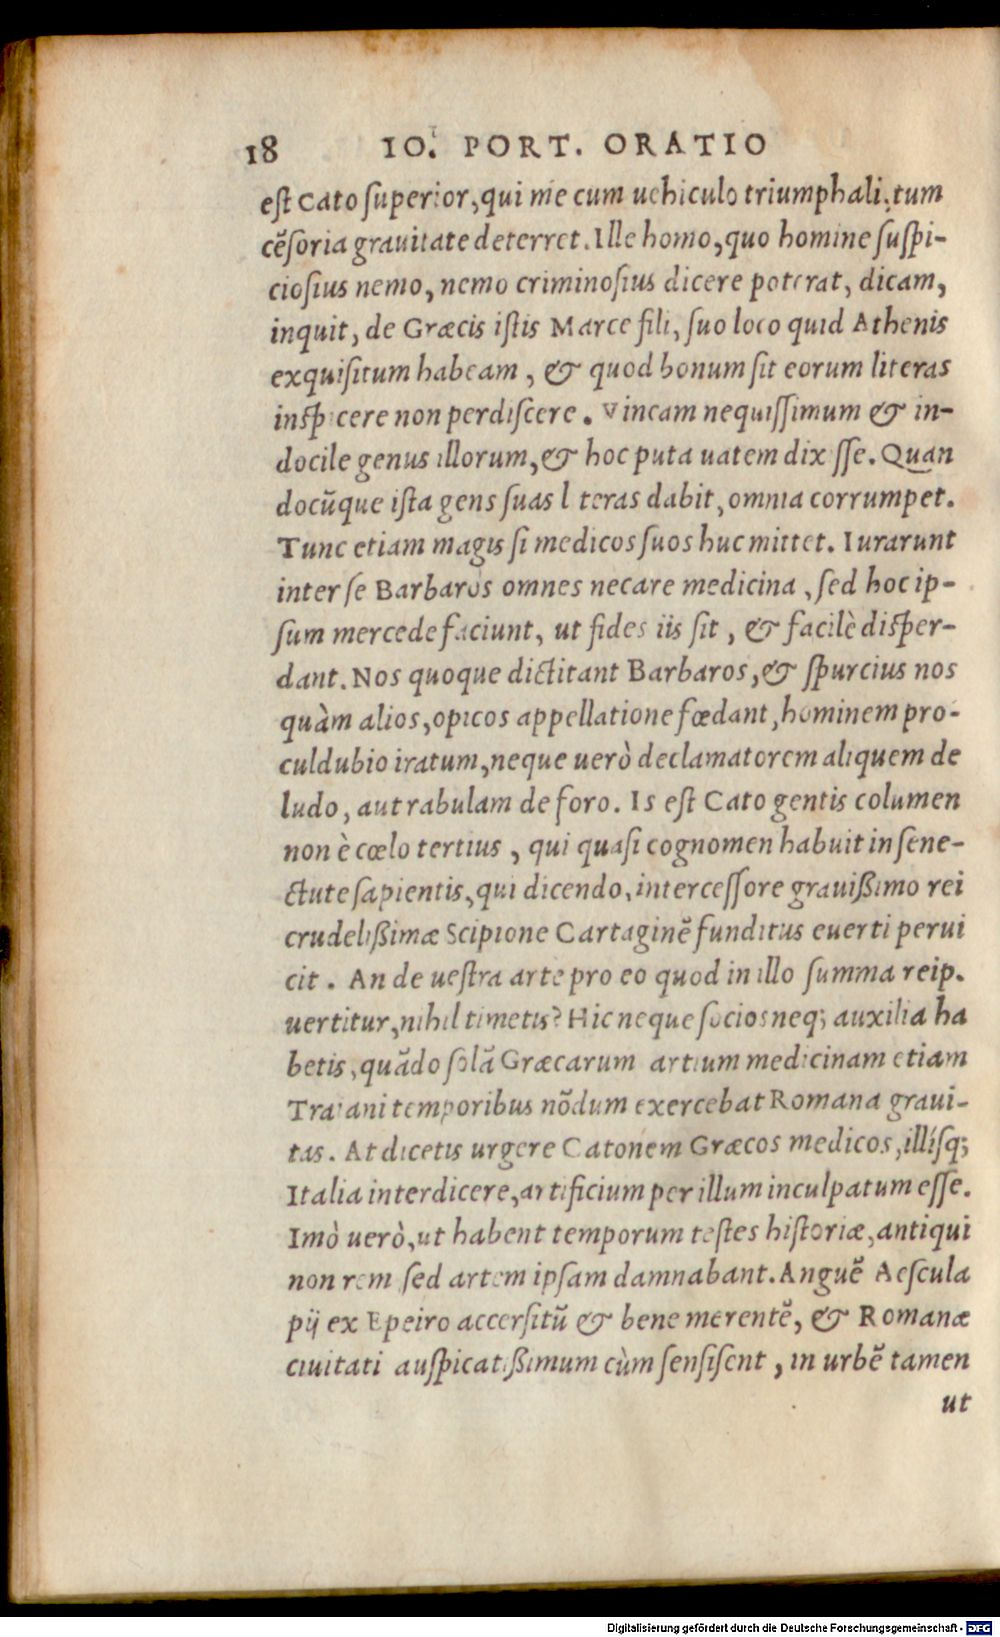 18 IO. PORT. ORATIO
est Cato superior, qui me cum uehiculo triumphali, tum
cẽsoria grauitate deterret. Ille homo, quo homine suspi-
ciosius nemo, nemo criminosius dicere poterat, dicam,
inquit, de Græcis istis Marce fili, suo loco quid Athenis
exquisitum habeam, & quod bonum sit eorum literas
inspicere non perdiscere. Vincam nequissimum & in-
docile genus illorum, & hoc puta uatem dixisse. Quan
docũque ista gens suas literas dabit, omnia corrumpet.
Tunc etiam magis si medicos suos huc mittet. Iurarunt
inter se Barbaros omnes necare medicina, sed hoc ip-
sum mercede faciunt, ut fides iis sit, & facilè disper-
dant. Nos quoque dictitant Barbaros, & spurcius nos
quàm alios, opicos appellatione fœdant, hominem pro-
culdubio iratum, neque uerò declamatorem aliquem de
ludo, aut rabulam de foro. Is est Cato gentis columen
non è cœlo tertius, qui quasi cognomen habuit in sene-
ctute sapientis, qui dicendo, intercessore grauißimo rei
crudelißimæ Scipione Cartaginẽ funditus euerti perui
cit. An de uestra arte pro eo quod in illo summa reip.
uertitur, nihil timetis? Hic neque socios neq; auxilia ha
betis, quãdo solã Græcarum artium medicinam etiam
Traiani temporibus nõdum exercebat Romana graui-
tas. At dicetis urgere Catonem Græcos medicos, illísq;
Italia interdicere, artificium per illum inculpatum esse.
Imò uerò, ut habent temporum testes historiæ, antiqui
non rem sed artem ipsam damnabant. Anguẽ Aescula
pij ex Epeiro accersitũ & bene merentẽ, & Romanæ
ciuitati auspicatißimum cùm sensisent, in urbẽ tamen
ut
Digitalisierung gefördert durch die Deutsche Forschungsgemeinschaft - DFG